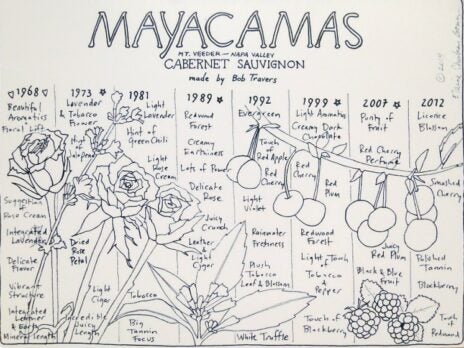 MAYACAMAS
MT. VEEDER — NAPA VALLEY
CABERNET SAUVIGNON
made by Bob Travers
©2014
♡1968♡
Beautiful
Aromatics
Floral Lift
Suggestion
Rose Cream
Integrated
Lavender
Delicate
Flavor
Vibrant
Structure
Integrated
Leather
& Earth
Mineral Length
1973 ☆
Lavender
& Tobacco
Flower
Hint of
Jalapeño
Dried
Rose
Petal
Light
Cigar
Incredible
Juicy
Length
1981
Light
Lavender
Hint of
Green Chili
Light
Rose
Cream
Tobacco
Big
Tannin
Focus
1989 ☆
Redwood
Forest
Creamy
Earthiness
Lots of Power
Delicate
Rose
Juicy
Crunch
Leather
&
Light
Cigar
1992
Evergreen
Touch of
Red Apple
Red
Cherry
Light
Violet
Rainwater
Freshness
Plush
Tobacco
Leaf & Blossom
White Truffle
1999 ☆
Light Aromatics
Creamy Dark
Chocolate
Red
Cherry
Red
Plum
Redwood
Forest
Light Touch of
Tobacco
&
Pepper
Touch of
Blackberry
2007 ☆
Purity of
Fruit
Red Cherry
Perfume
Juicy
Red Plum
Black & Blue
Fruit
2012
Licorice
Blossom
Smashed
Cherry
Polished
Tannin
Blackberry
Touch of
Redwood